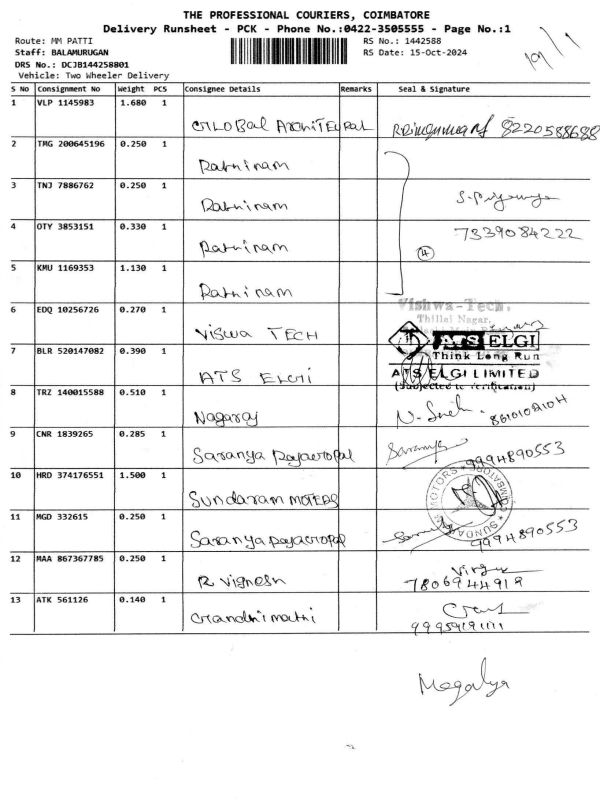 THE PROFESSIONAL COURIERS, COIMBATORE
Delivery Runsheet - PCK - Phone No.:0422-3505555 - Page No.:1
Route: MM PATTI RS No.: 1442588
Staff: BALAMURUGAN RS Date: 15-Oct-2024
DRS No.: DCJB144258801
Vehicle: Two Wheeler Delivery
S No Consignment No Weight PCS Consignee Details Remarks Seal & Signature
1 VLP 1145983 1.680 1
GLOBal ArchiTEURAL 8220588688
2 TMG 200645196 0.250 1
Rathinam
3 TNJ 7886762 0.250 1
Rathinam S.Priyanga
4 OTY 3853151 0.330 1 7339084222
Rathinam 4
5 KMU 1169353 1.130 1
Rathinam
Vishwa-Tech.
Thillai Nagar,
6 EDQ 10256726 0.270 1
Viswa TECH
ATS ELGI
7 BLR 520147082 0.390 1 Think Long Run
ATS ELGI ATS ELGI LIMITED
(Subjected to Verification)
8 TRZ 140015588 0.510 1
Nagaraj
9 CNR 1839265 0.285 1 Saranya
Saranya Rajagopal 9994890553
10 HRD 374176551 1.500 1
Sundaram MOTERS SUNDARAM MOTORS COIMBATORE
11 MGD 332615 0.250 1
Saranya Rajagopal 9994890553
12 MAA 867367785 0.250 1
R Vignesh 7806944919
13 ATK 561126 0.140 1
Gandhimathi
Megalya